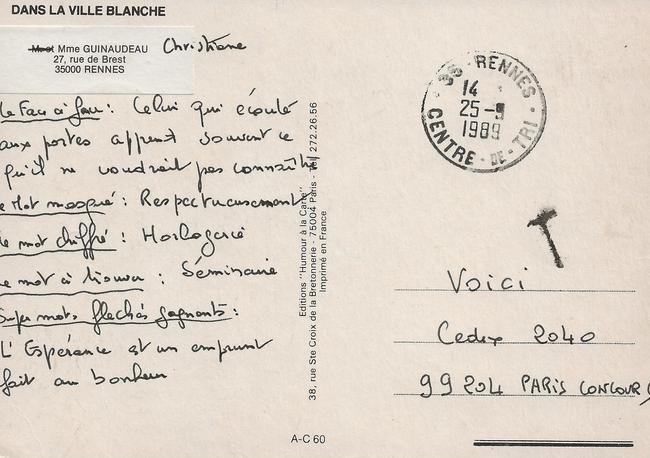 DANS LA VILLE BLANCHE
Mme GUINAUDEAU Christiane
27, rue de Brest
35000 RENNES
le Face à face : Celui qui écoute
aux portes apprend souvent ce
qu'il ne voudrait pas connaître
le Mot masqué : Respectueusement
le mot chiffré : Horlogerie
le mot à trouver : Séminaire
Super mots fléchés gagnants :
L'Espérance est un emprunt
fait au bonheur
Editions "Humour à la Carte"
38, rue Ste Croix de la Bretonnerie - 75004 Paris - Tél. 272.26.56
Imprimé en France
A-C 60
RENNES
14
25-9
1989
CENTRE-DE-TRI
T
Voici
Cedex 2040
99204 PARIS CONCOURS